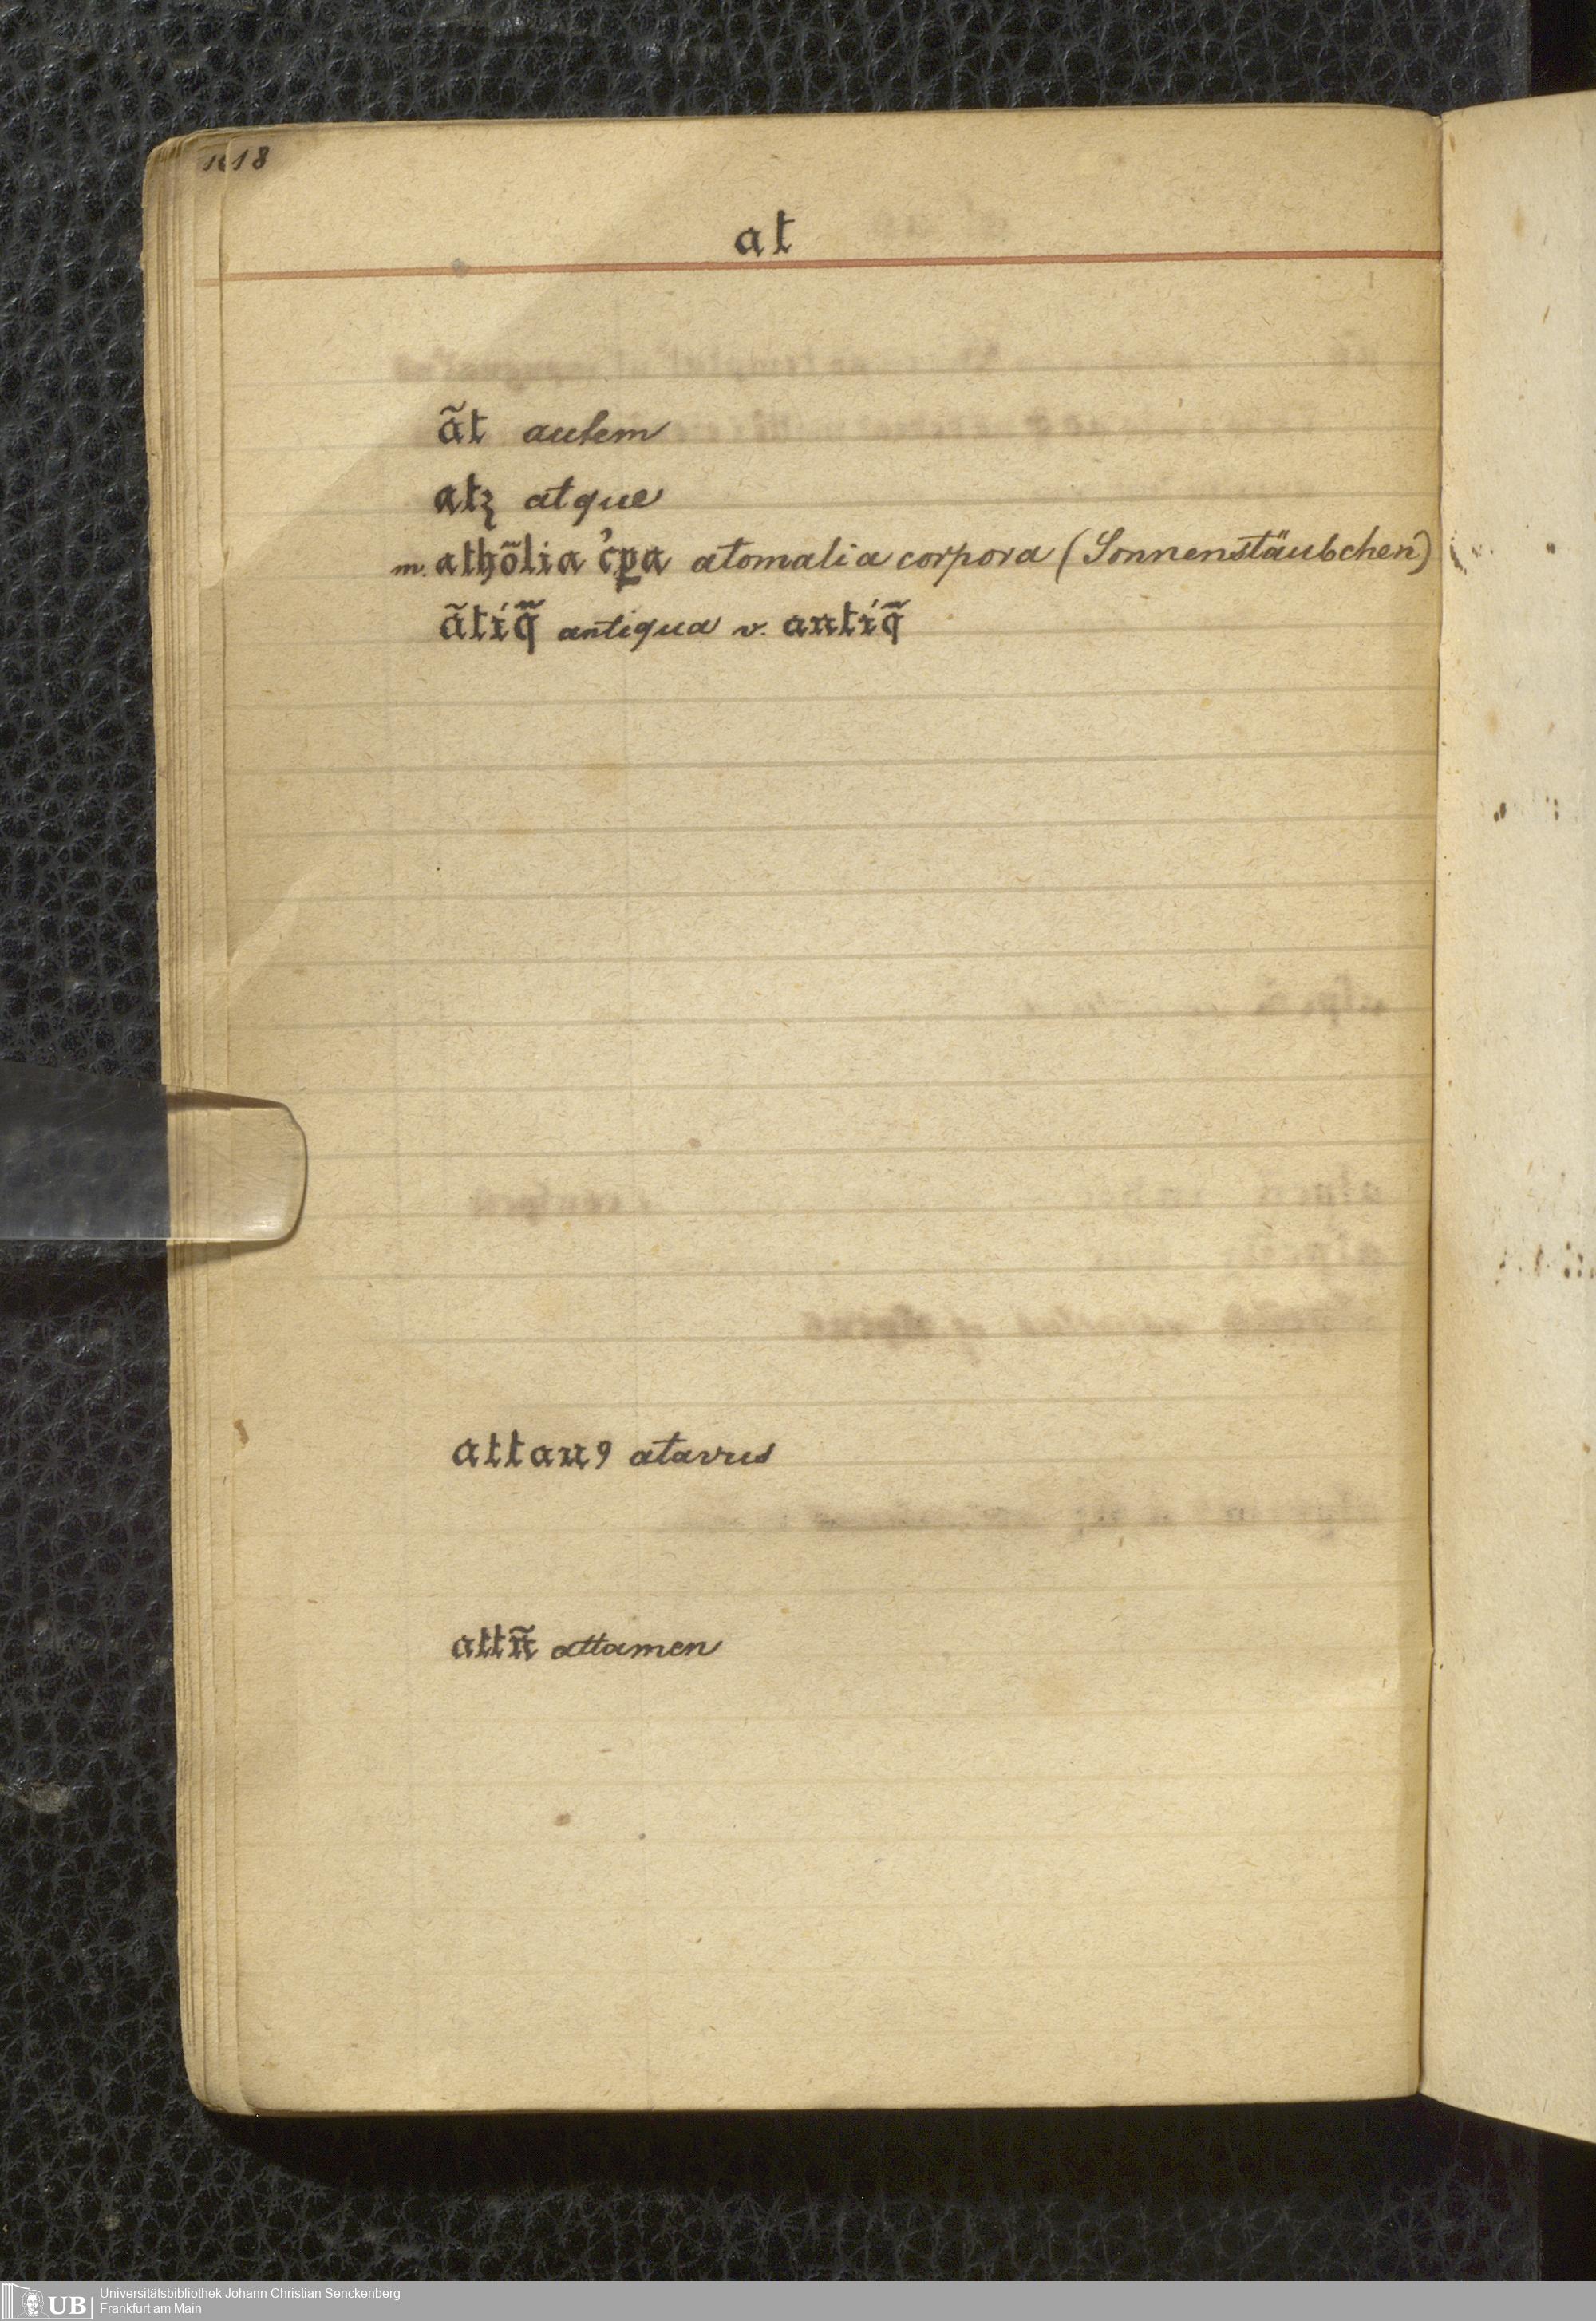 18
at
ãt autem
atꝫ atque
m. athõlia c̓ꝑa atomalia corpora (Sonnenstäubchen)
ãtiq̃ antiqua v. antiq̃
attauꝯ atavus
attñ attamen
UB Universitätsbibliothek Johann Christian Senckenberg
Frankfurt am Main